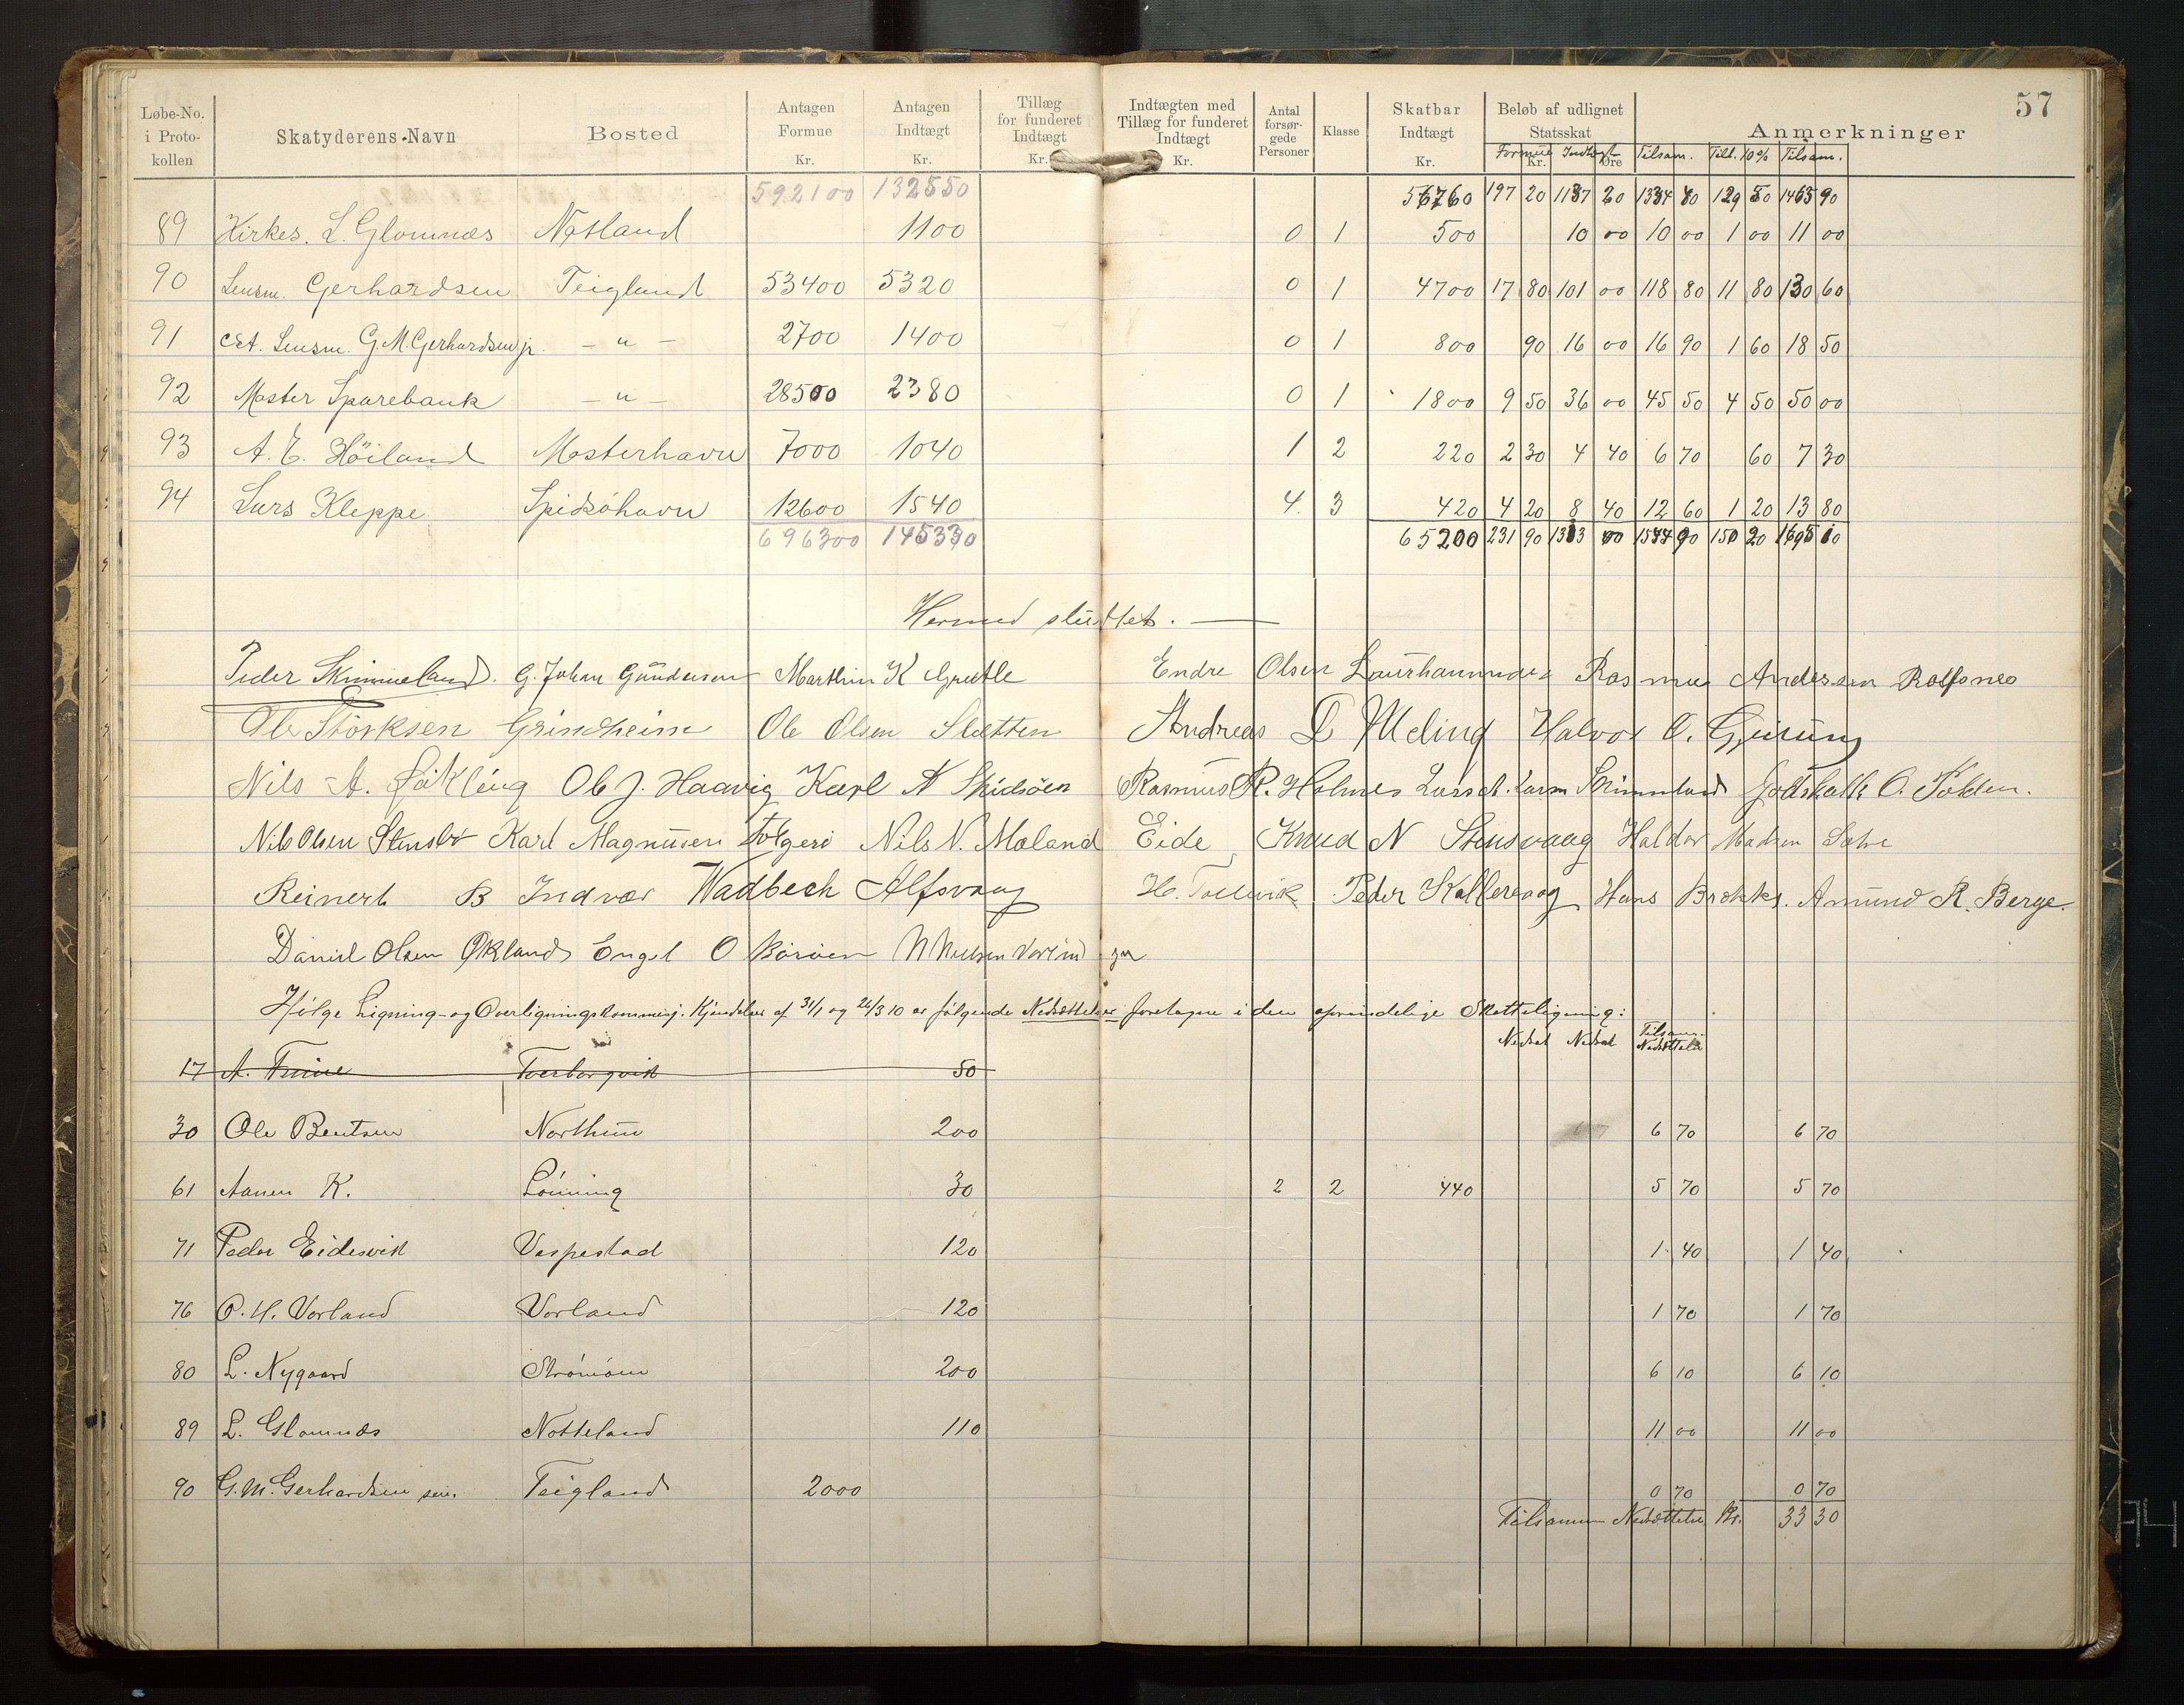 57
Løbe-No. i Proto-kollen | Skatyderens Navn | Bosted | Antagen Formue Kr. | Antagen Indtægt Kr. | Tillæg for funderet Indtægt Kr. | Indtægten med Tillæg for funderet Indtægt Kr. | Antal forsør-gede Personer | Klasse | Skatbar Indtægt Kr. | Beløb af udlignet Statsskat Kr. Øre | Anmerkninger
Formue Indtægt Tilsam. Till. 10% Tilsam.
592100 132550 56760 197 20 1137 60 1334 80 129 50 1463 90
89 Kirkes. L. Glomnæs Notland 1100 0 1 500 10 00 10 00 1 00 11 00
90 Lensm. Gerhardsen Teigland 53400 5320 0 1 4700 17 80 101 00 118 80 11 80 130 60
91 Lensm. G. M. Gerhardsen jr. – " – 2700 1400 0 1 800 90 16 00 16 90 1 60 18 50
92 Moster Sparebank – " – 28500 2380 0 1 1800 9 50 36 00 45 50 4 50 50 00
93 A. E. Höiland Mosterhavn 7000 1040 1 2 220 2 30 4 40 6 70 60 7 30
94 Lars Kleppe Spidsöhavn 12600 1540 4 3 420 4 20 8 40 12 60 1 20 13 80
696300 145330 65200 231 90 1313 00 90 150 20 1695 10
Hermed sluttet.
Peder Skimmeland. G. Johan Gundersen Marthin K Grutle Endre Olsen Rasmus Andersen Rolfsnes
Ole Störksen Grindheim Ole Olsen Sletten Andreas D Meling Halvor O.
Nils A. Ole J. Haavig Karl A Spidsöen Rasmus R. Holmes Lars A. Larsen Skimmland O. Folden.
Nils Olsen Stensbö Karl Magnusen Folgerö Nils N. Mæland Eide Knud N Stensvaag Haldor Madsen
Reinert B Indvær Wadbech Alfsvaag H. Tollevik Peder Kallevaag Hans Brekke. Amund R. Berge.
Daniel Olsen Økland Engel O Böröen N Nielsen
Ifölge Ligning- og Overligningskommisj. Kjendelser af 31/1 og 26/3 10 er fölgende Nedsættelser foretagne i den oprindelige Skatteligning:
Nedsat Nedsat Tilsam. Nedsættelse
17 A. 50
30 Ole Bentsen Northun 200 6 70 6 70
61 Aanen K. Lönning 30 2 2 440 5 70 5 70
71 Peder Eidesvik Vespestad 120 1 40 1 40
76 O. H. Vorland Vorland 120 1 70 1 70
80 L. Nygaard Strömöen 200 6 10 6 10
89 L. Glomnæs Notteland 110 11 00 11 00
90 G. M. Gerhardsen sen. Teigland 2000 0 70 0 70
Tilsammen Nedsættelse Kr. 33 30